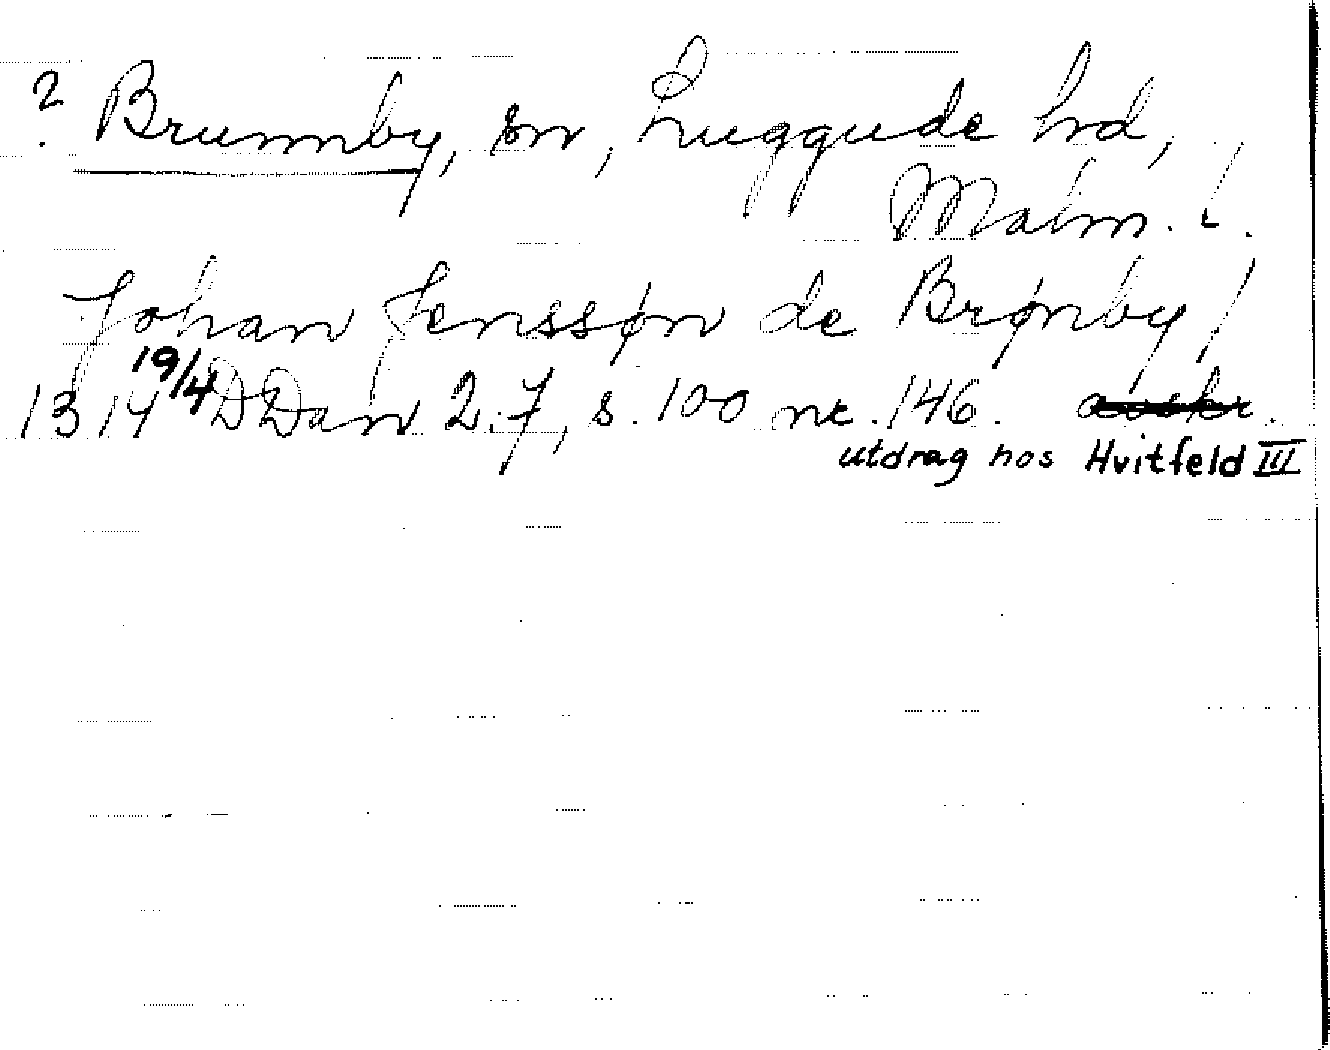 ? Brunnby, sn, Luggude hd,
Malm. L.
Johan Jenssøn de Brønby /
1314 19/4 DDan 2:7, s. 100 nr. 146. avskr.
utdrag hos Hvitfeld III